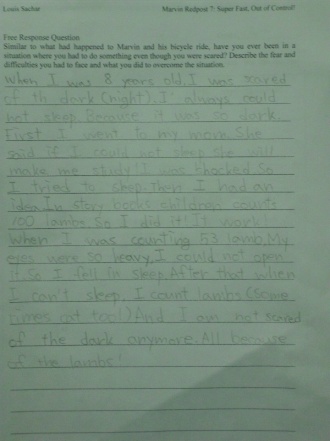 Louis Sachar Marvin Redpost 7: Super Fast, Out of Control!
Free Response Question
Similar to what had happened to Marvin and his bicycle ride, have you ever been in a
situation where you had to do something even though you were scared? Describe the fear and
difficulties you had to face and what you did to overcome the situation.
When I was 8 years old, I was scared
of th dark (night). I always could
not sleep. Because it was so dark.
First I went to my mom. She
said if I could not sleep she will
make me study! I was shocked. So
I tried to sleep. Then I had an
idea. In story books children counts
100 lambs. So I did it! It work!!
When I was counting 53 lamb, My
eyes were so heavy, I could not open
it. So I fell in sleep. After that when
I can't sleep, I count lambs (some
times cat too!) And I am not scared
of the dark anymore. All because
of the lambs!